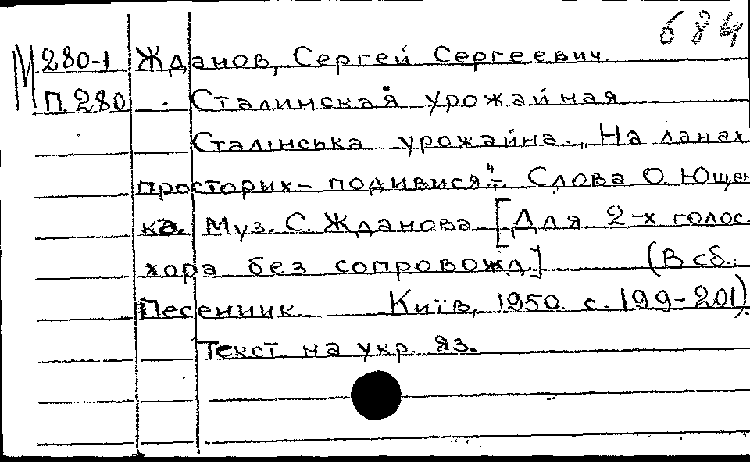 684
М 280-1 Жданов, Сергей Сергеевич.
П 280 Сталинская урожайная
Сталінська урожайна. „На ланах
просторих - подивися“. Слова О. Ющен
ка. Муз. С. Жданова [Для 2-х голос.
хора без сопровожд.] (В сб.:
Песенник Київ, 1950 с. 199-201)
Текст на укр. яз.